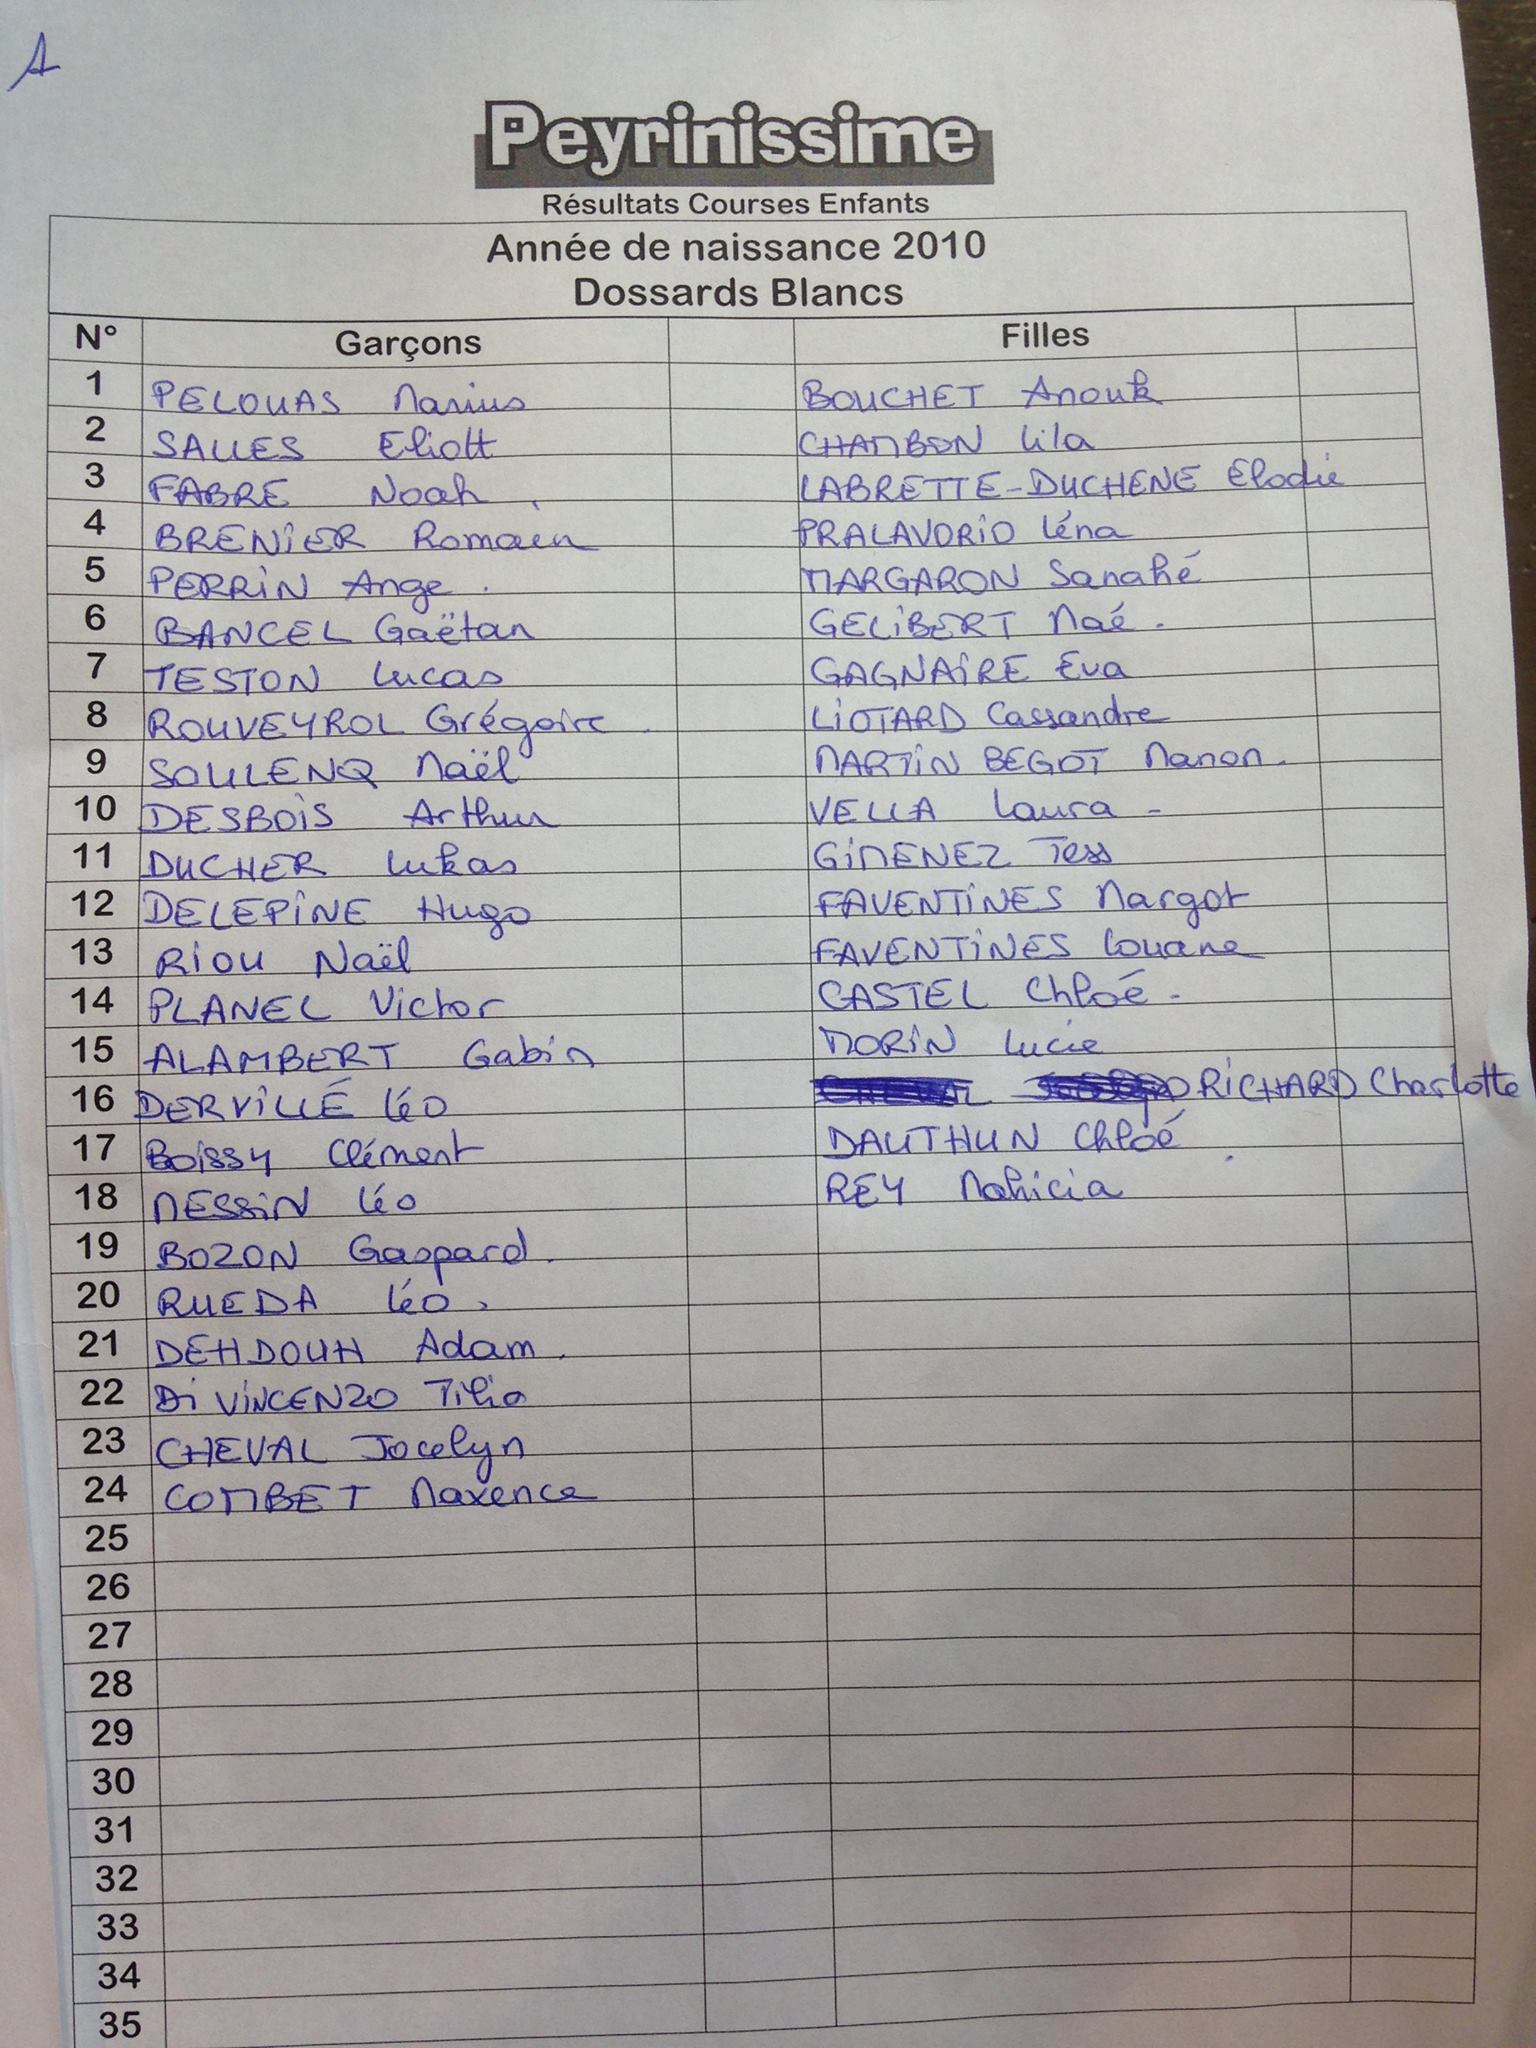 A
Peyrinissime
Résultats Courses Enfants
Année de naissance 2010
Dossards Blancs
N° Garçons Filles
1 PELOUAS Marius BOUCHET Anouk
2 SALLES Eliott CHAMBON Lila
3 FABRE Noah LABRETTE-DUCHENE Elodie
4 BRENIER Romain PRALAVORIO Léna
5 PERRIN Ange. MARGARON Sanahé
6 BANCEL Gaëtan GELIBERT Maé.
7 TESTON Lucas GAGNAIRE Eva
8 ROUVEYROL Grégoire LIOTARD Cassandre
9 SOULENQ Maël MARTIN BEGOT Manon.
10 DESBOIS Arthur VELLA Laura -
11 DUCHER Lukas GIMENEZ Tess
12 DELEPINE Hugo FAVENTINES Margot
13 RIOU Naël FAVENTINES Louane
14 PLANEL Victor CASTEL Chloé -
15 ALAMBERT Gabin MORIN Lucie
16 DERVILLÉ Léo RICHARD Charlotte
17 BOISSY Clément DAUTHUN Chloé
18 MESSIN Léo REY
19 BOZON Gaspard.
20 RUEDA Léo.
21 DEHDOUH Adam.
22 DI VINCENZO Tilio
23 CHEVAL Jocelyn
24 COMBET Maxence
25
26
27
28
29
30
31
32
33
34
35